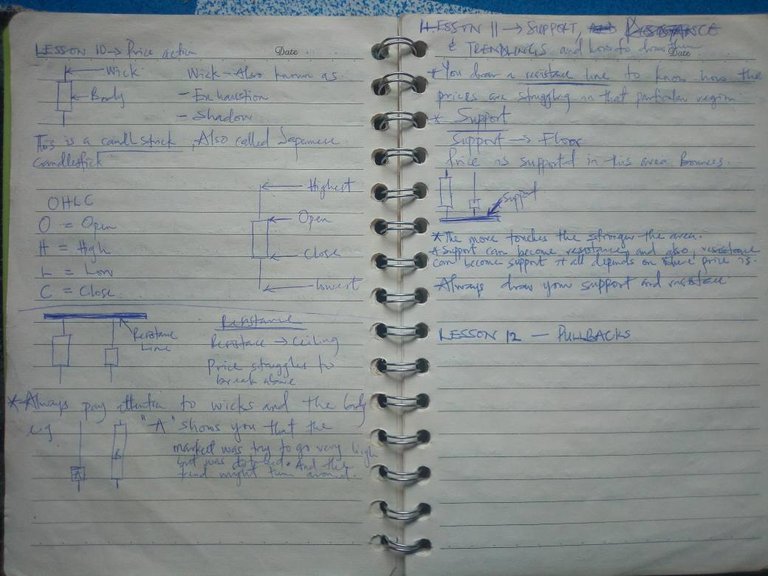 LESSON 10 → Price action
Date
Wick
Body
Wick - Also known as
- Exhaustion
- Shadow
This is a candlestick, Also called Japanese
Candlestick
OHLC
O = Open
H = High
L = Low
C = Close
Highest
Open
Close
lowest
Resistance
Line
Resistance
Resistance → Ceiling
Price struggles to
break above
* Always pay attention to wicks and the body
e.g
A
"A" shows you that the
market was try to go very high
but was And the
trend might turn around.
LESSON 11 → SUPPORT, RESISTANCE
& TRENDLINES and how to draw them
Date
* You draw a resistance line to know how the
prices are struggling in that particular region
* Support
Support → Floor
Price is supported in this area Bounces.
Support
* The more touches the stronger the area.
* Support can become resistance and also, resistance
can become support it all depends on where price is.
Always draw your support and resistance
LESSON 12 - PULLBACKS